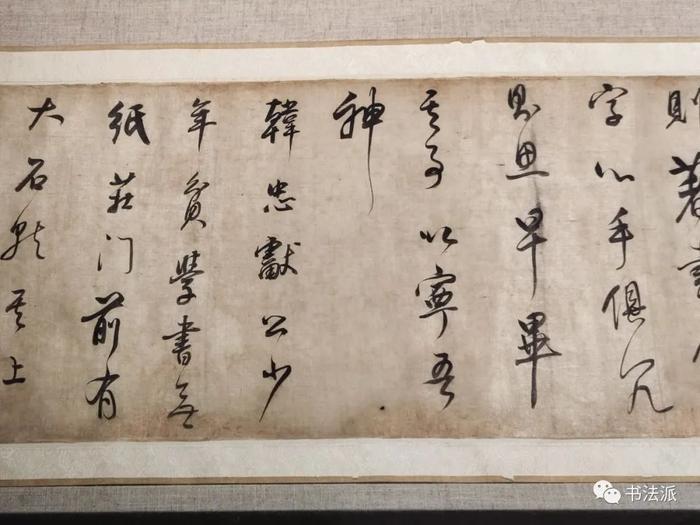 著
字心手俱冗
則思早畢
其事以寧吾
神
韓忠獻公少
年貧學書無
紙莊门前有
大石就其上
书法派